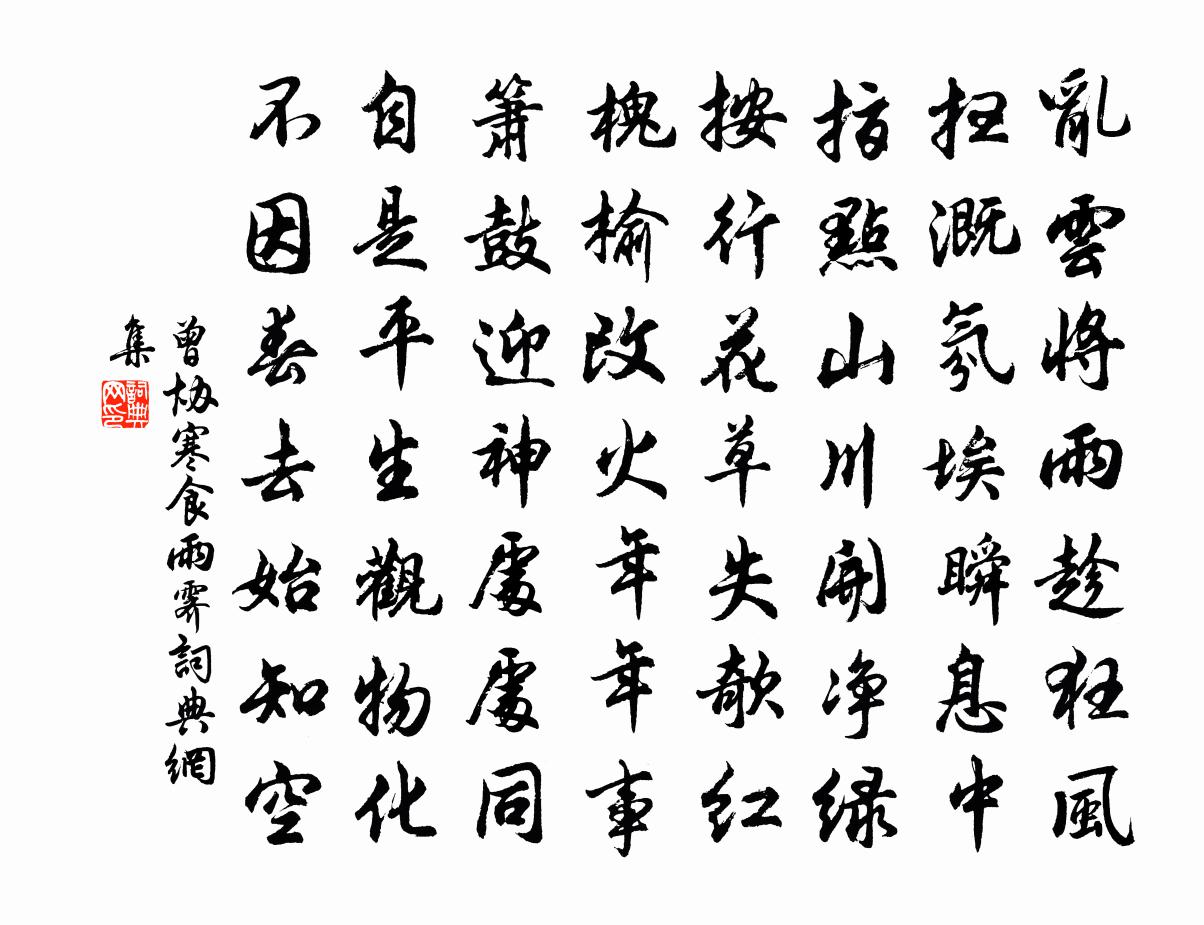 亂雲將雨趁狂風
掃溉氛埃瞬息中
指點山川開净緑
按行花草失欹紅
槐榆改火年年事
簫鼓迎神處處同
自是平生觀物化
不因春去始知空
曾協寒食雨霽詞典網
集
詞典
网印